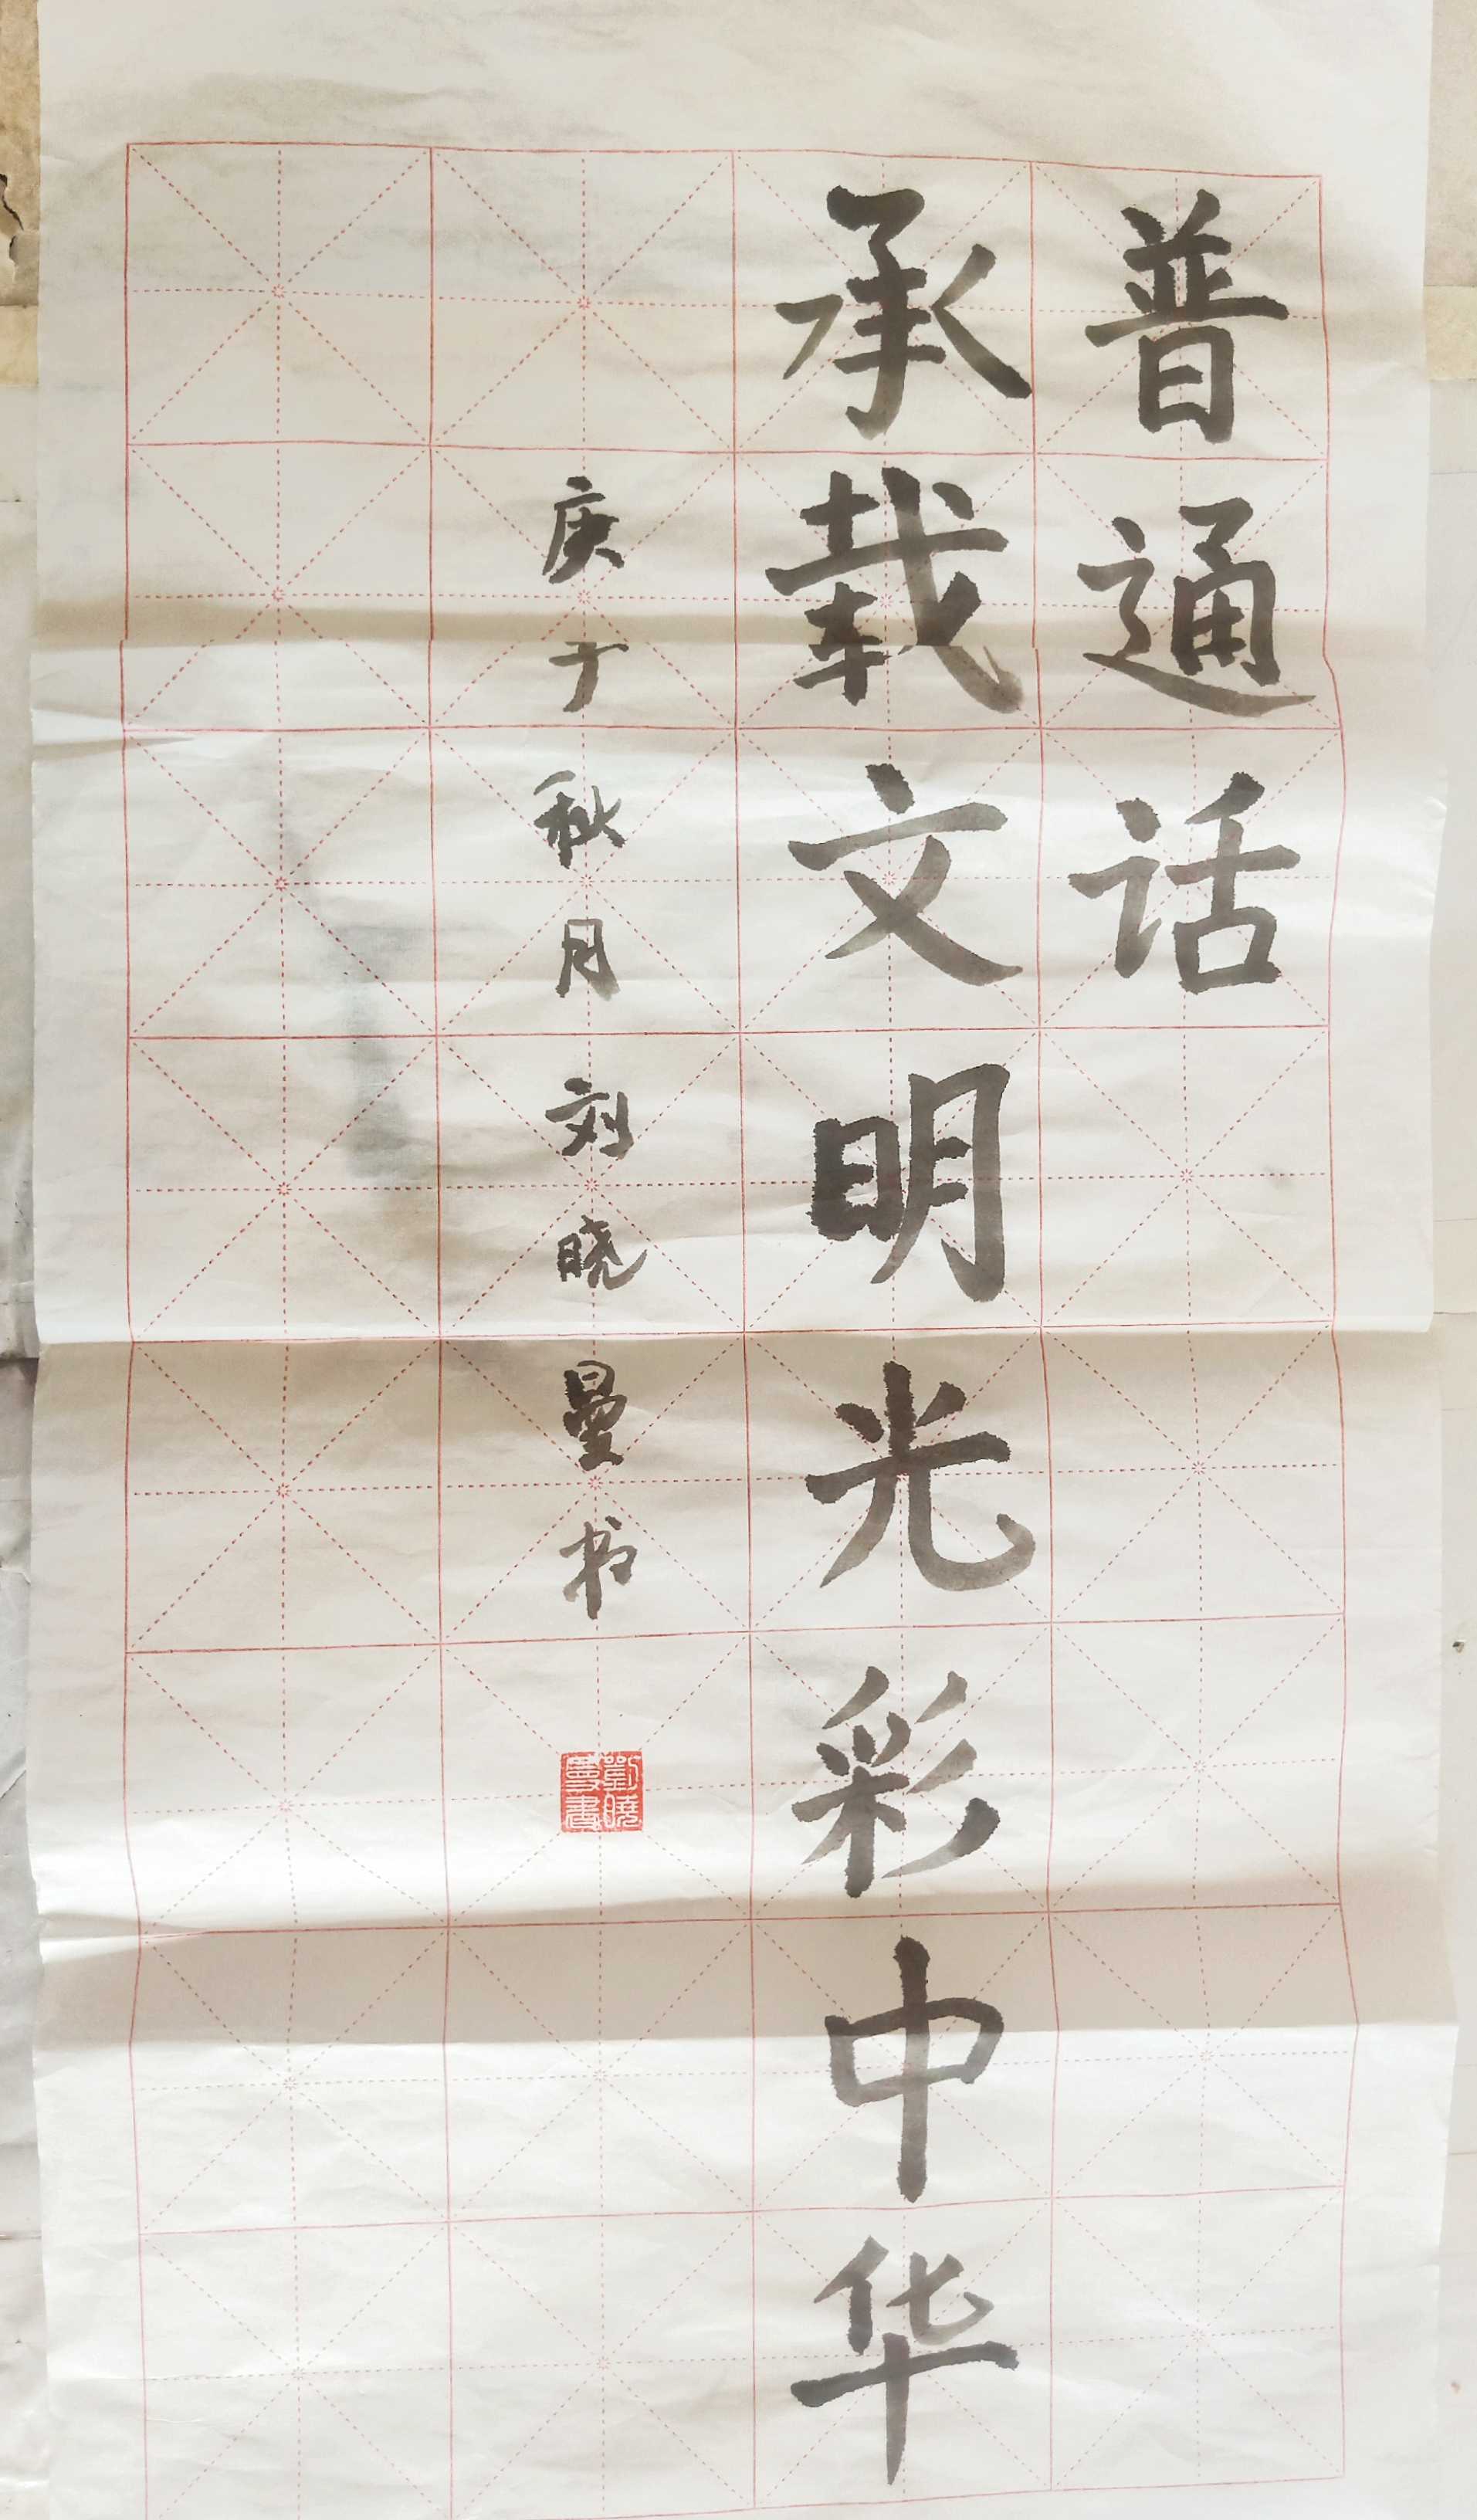 普通话
承载文明光彩中华
庚子秋月刘晓曼书
劉曉
曼書